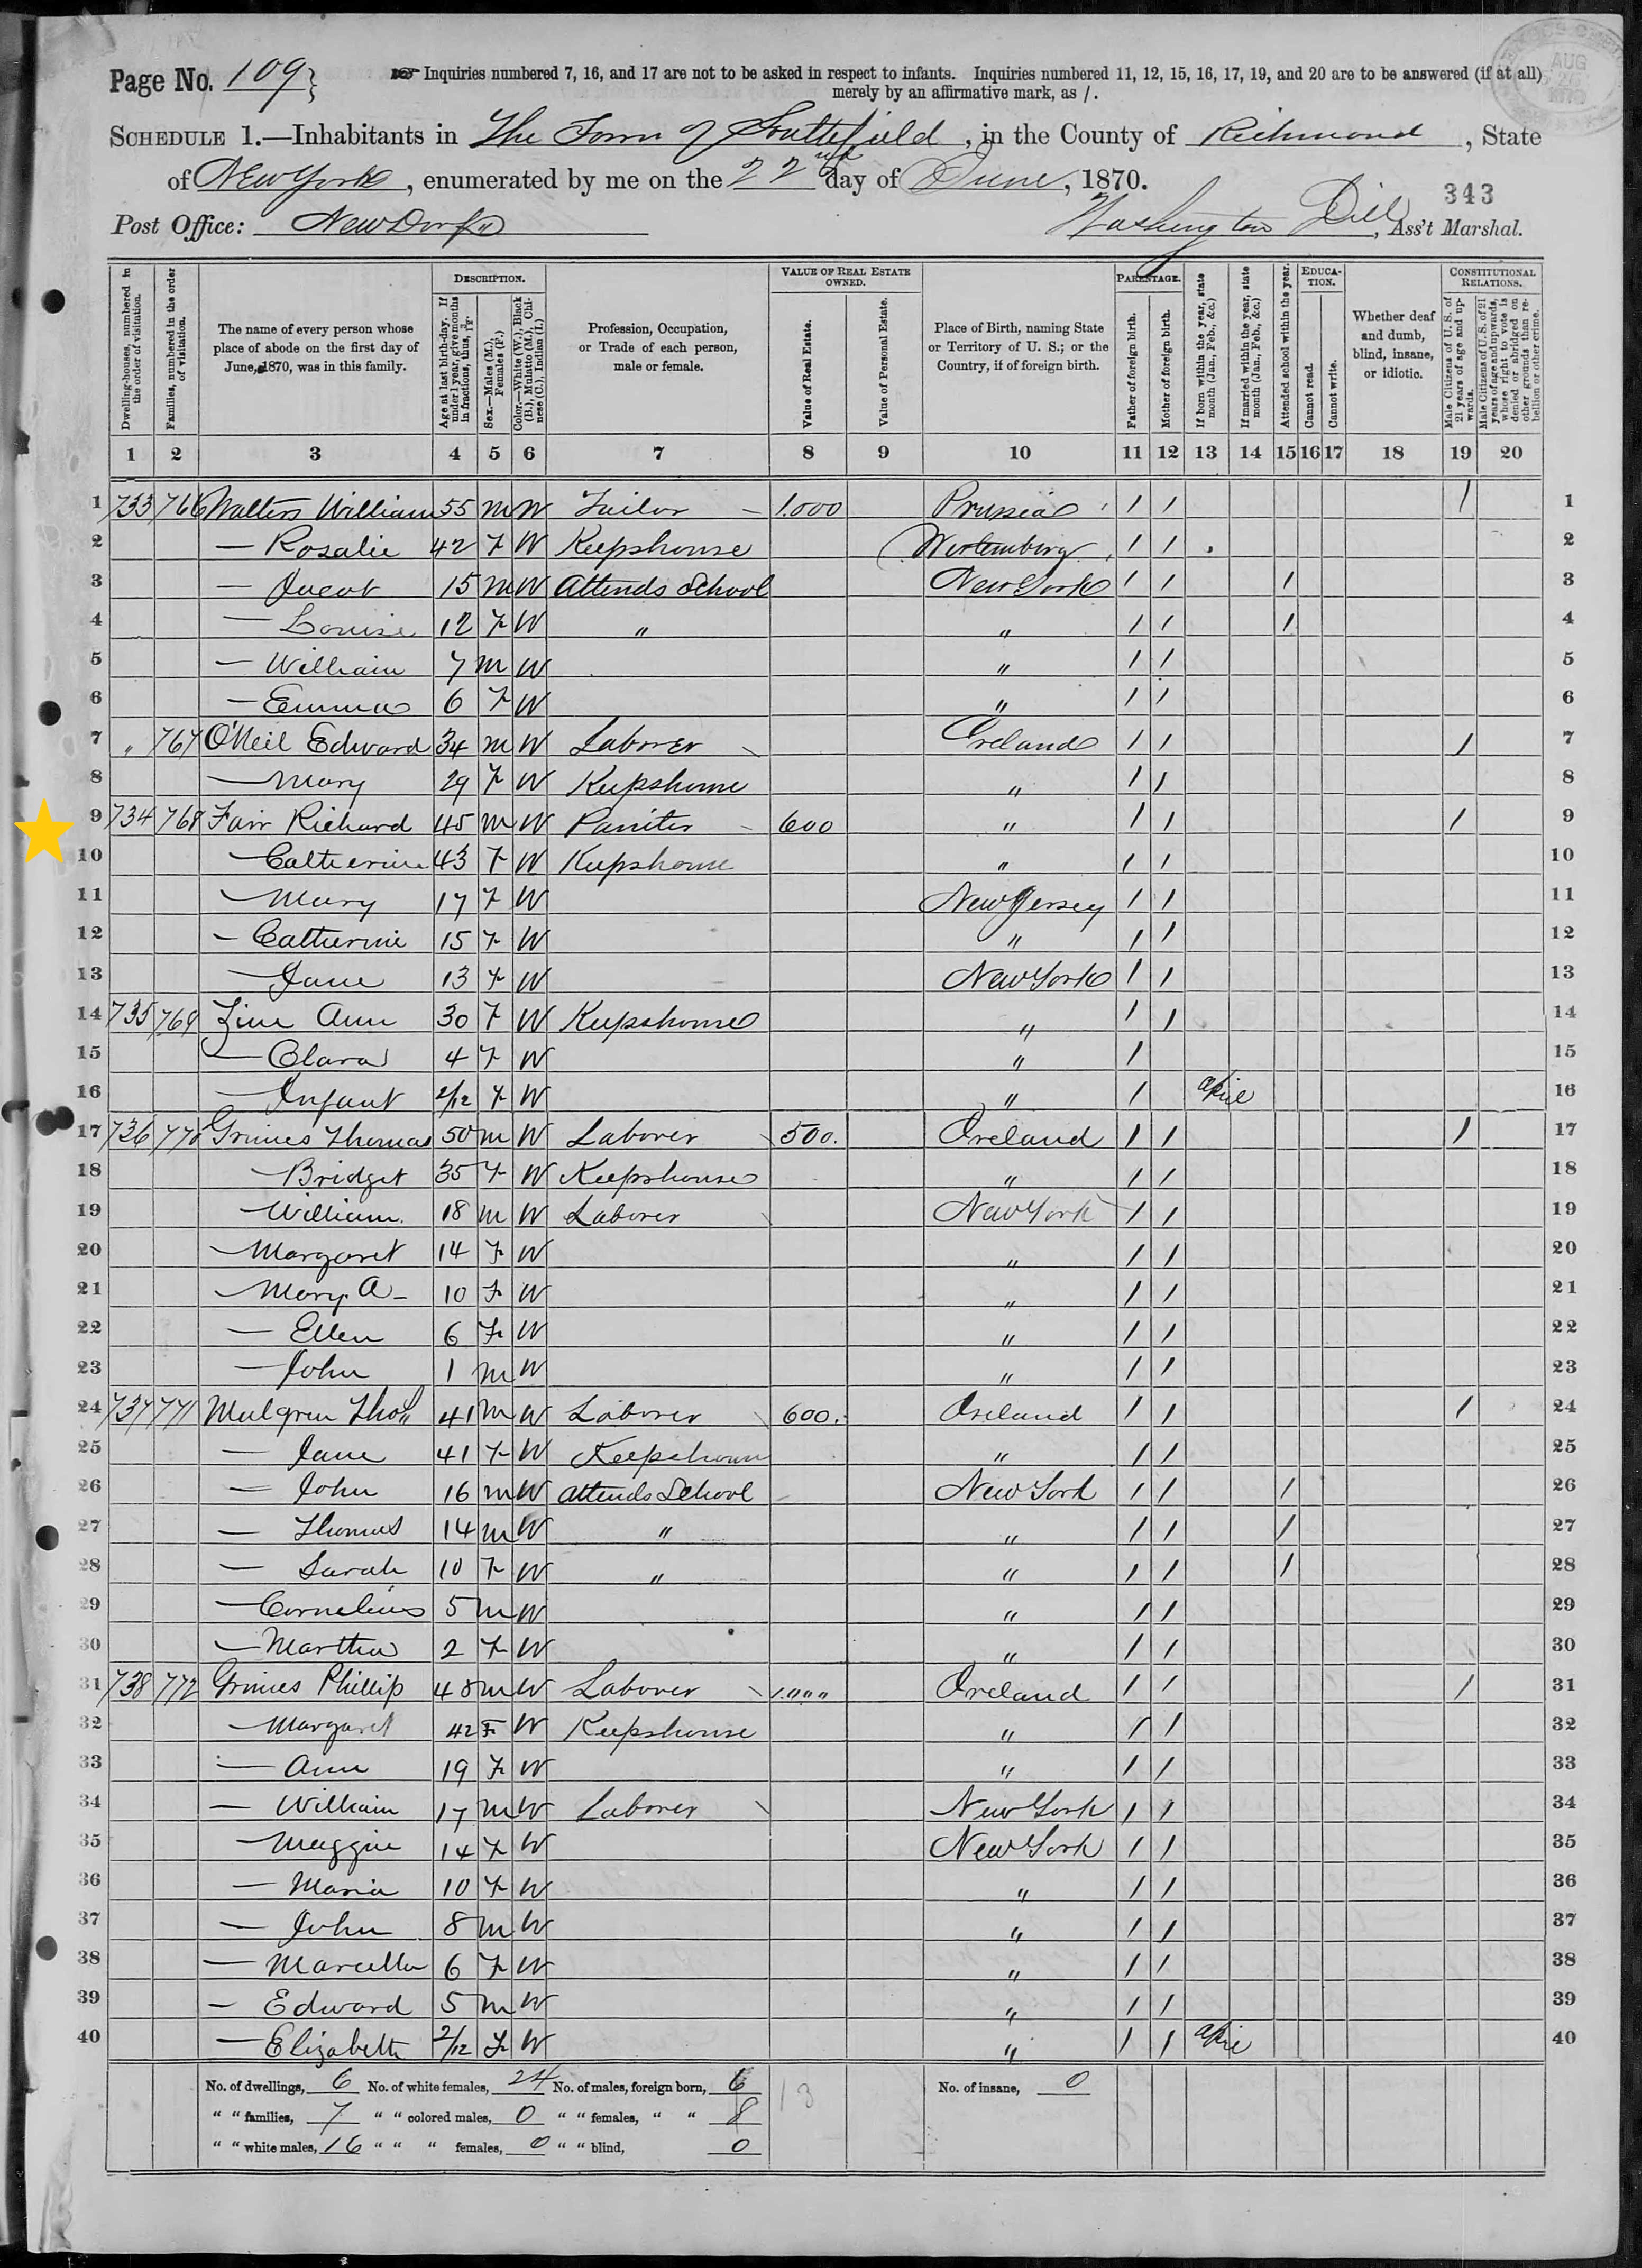 Page No. 109}
Inquiries numbered 7, 16, and 17 are not to be asked in respect to infants. Inquiries numbered 11, 12, 15, 16, 17, 19, and 20 are to be answered (if at all)
merely by an affirmative mark, as /.
AUG
SCHEDULE 1.—Inhabitants in The Town of Southfield, in the County of Richmond, State
of New York, enumerated by me on the 22nd day of June, 1870.
343
Post Office: New Dorp
Washington Dill, Ass't Marshal.
Dwelling-houses, numbered in the order of visitation.
Families, numbered in the order of visitation.
The name of every person whose place of abode on the first day of June, 1870, was in this family.
DESCRIPTION.
Age at last birth-day. If under 1 year, give months in fractions, thus, 3/12.
Sex.—Males (M.), Females (F.)
Color.—White (W.), Black (B.), Mulatto (M.), Chinese (C.), Indian (I.)
Profession, Occupation, or Trade of each person, male or female.
VALUE OF REAL ESTATE OWNED.
Value of Real Estate.
Value of Personal Estate.
Place of Birth, naming State or Territory of U. S.; or the Country, if of foreign birth.
PARENTAGE.
Father of foreign birth.
Mother of foreign birth.
If born within the year, state month (Jan., Feb., &c.)
If married within the year, state month (Jan., Feb., &c.)
Attended school within the year.
EDUCATION.
Cannot read.
Cannot write.
Whether deaf and dumb, blind, insane, or idiotic.
CONSTITUTIONAL RELATIONS.
Male Citizens of U. S. of 21 years of age and upwards.
Male Citizens of U. S. of 21 years of age and upwards, whose right to vote is denied or abridged on other grounds than rebellion or other crime.
1 2 3 4 5 6 7 8 9 10 11 12 13 14 15 16 17 18 19 20
1 733 766 Walters William 55 M W Tailor – 1.000 Prussia / / / 1
2 — Rosalie 42 F W Keepshouse Wertemburg / / 2
3 — Jacob 15 M W Attends School New York / / / 3
4 — Louise 12 F W " " / / / 4
5 — William 7 M W " / / 5
6 — Emma 6 F W " / / 6
7 " 767 O'Neil Edward 34 M W Laborer Ireland / / / 7
8 — Mary 29 F W Keepshouse " / / 8
9 734 768 Farr Richard 45 M W – 600 " / / / 9
10 — Catherine 43 F W Keepshouse " / / 10
11 — Mary 17 F W New Jersey / / 11
12 — Catherine 15 F W " / / 12
13 — Jane 13 F W New York / / 13
14 735 769 Ann 30 F W Keepshouse " / / 14
15 — Clara 4 F W " / 15
16 — Infant 2/12 F W " / April 16
17 736 770 Grimes Thomas 50 M W Laborer 500. Ireland / / / 17
18 — Bridget 35 F W Keepshouse " / / 18
19 — William 18 M W Laborer New York / / 19
20 — Margaret 14 F W " / / 20
21 — Mary A– 10 F W " / / 21
22 — Ellen 6 F W " / / 22
23 — John 1 M W " / / 23
24 737 771 Mulgrew Thos 41 M W Laborer 600. Ireland / / / 24
25 — Jane 41 F W Keepshouse " / / 25
26 — John 16 M W Attends School New York / / / 26
27 — Thomas 14 M W " " / / / 27
28 — Sarah 10 F W " " / / / 28
29 — Cornelius 5 M W " / / 29
30 — Martha 2 F W " / / 30
31 738 772 Grimes Phillip 48 M W Laborer 1.""" Ireland / / / 31
32 — Margaret 42 F W Keepshouse " / / 32
33 — Ann 19 F W " / / 33
34 — William 17 M W Laborer New York / / 34
35 — Maggie 14 F W New York / / 35
36 — Maria 10 F W " / / 36
37 — John 8 M W " / / 37
38 — Marcella 6 F W " / / 38
39 — Edward 5 M W " / / 39
40 — Elizabeth 2/12 F W " / / April 40
No. of dwellings, 6 No. of white females, 24 No. of males, foreign born, 6 13 No. of insane, 0
" " families, 7 " " colored males, 0 " " females, " " 8
" " white males, 16 " " " females, 0 " " blind, 0